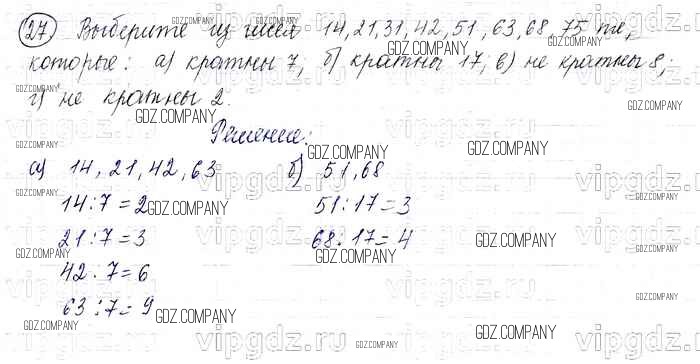 27 Выберите из чисел 14, 21, 31, 42, 51, 63, 68, 75 те,
которые: а) кратны 7; б) кратны 17, в) не кратны 8;
г) не кратны 2.
Решение:
а) 14, 21, 42, 63 б) 51, 68
14:7=2 51:17=3
21:7=3 68:17=4
42:7=6
63:7=9
GDZ.COMPANY
vipgdz.ru